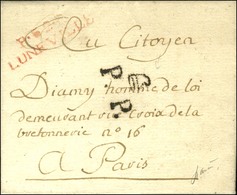 LUNEVILLE
Au Citoyen
P. P.
Diamy homme de loi
demeurant rue Croix de la
bretonnerie n° 16
A Paris